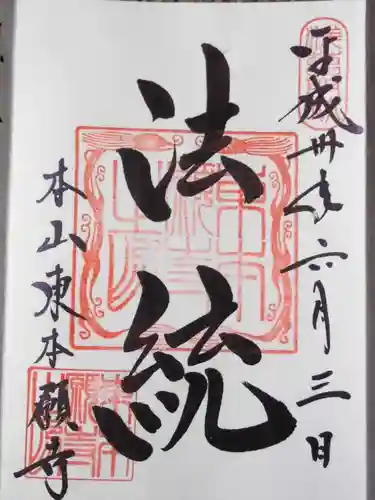 平成卅年六月三日
法統
本山東本願寺